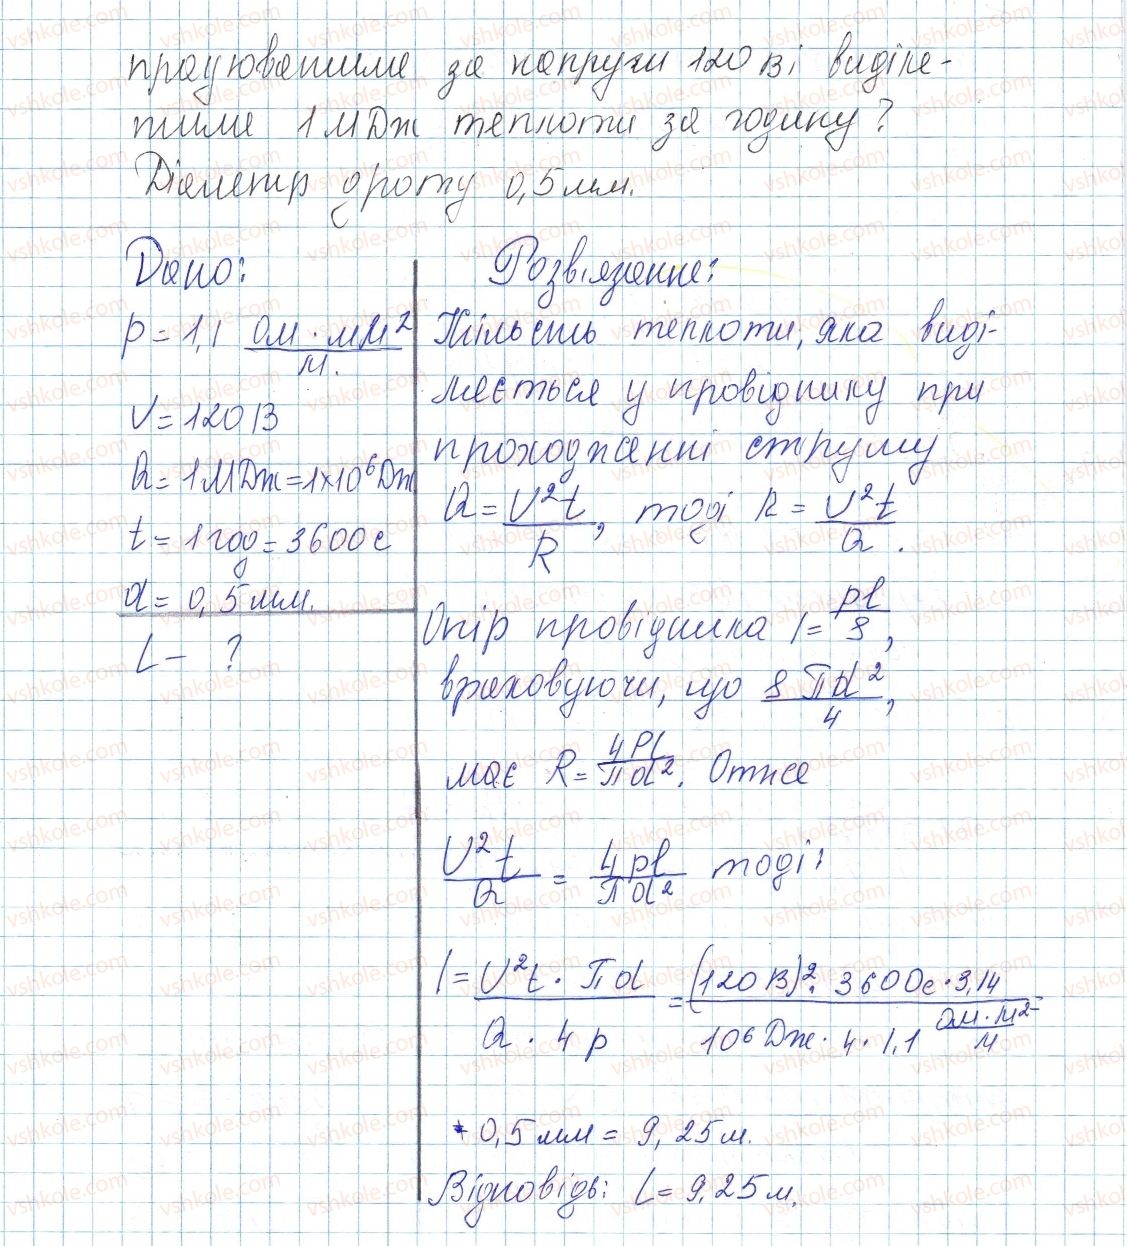 працюватиме за напруги 120 В і виділя-
тиме 1 МДж теплоти за годину?
Діаметр дроту 0,5 мм.
Дано:
ρ = 1,1 Ом · мм² / м.
U = 120 В
Q = 1 МДж = 1×10⁶ Дж
t = 1 год = 3600 с
d = 0,5 мм.
L - ?
Розв'язання:
Кількість теплоти, яка виді-
ляється у провіднику при
проходженні струму
Q = U²t / R, тоді R = U²t / Q.
Опір провідника l = ρl / S,
враховуючи, що S πd² / 4,
має R = 4ρl / πd². Отже
U²t / Q = 4ρl / πd² тоді:
l = U²t · πd / Q · 4ρ = (120 В)² · 3600 с · 3,14 / 10⁶ Дж · 4 · 1,1 Ом · м² / м =
* 0,5 мм = 9,25 м.
Відповідь: L = 9,25 м.
vshkole.com